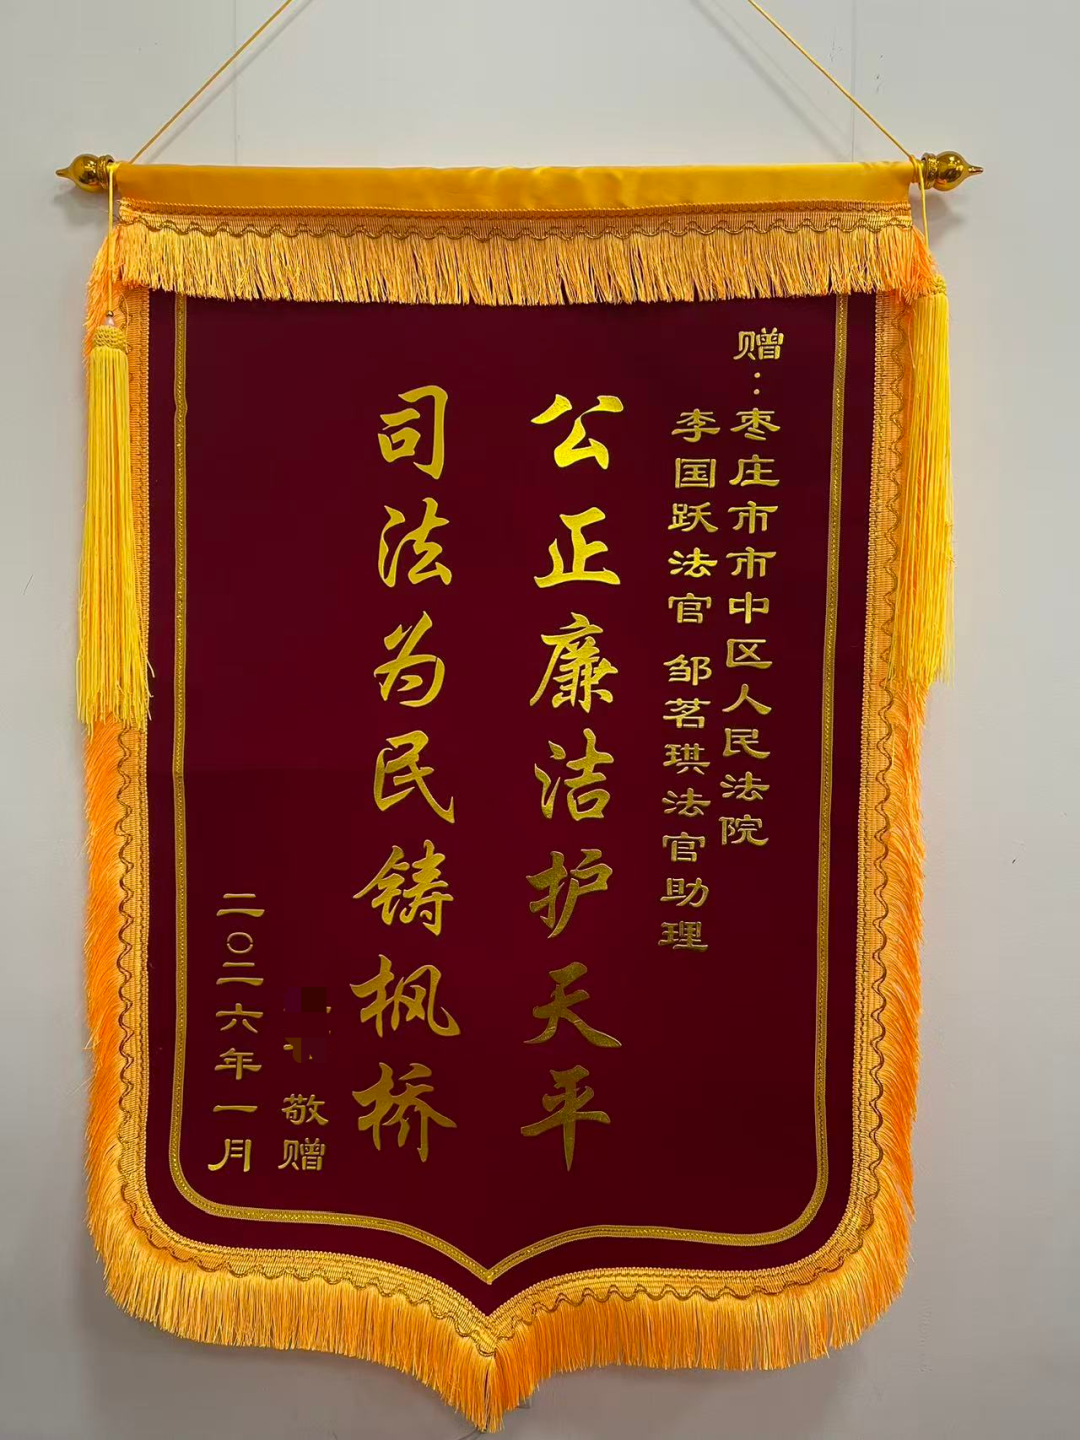 赠：枣庄市市中区人民法院
李国跃法官 邹茗琪法官助理
公正廉洁护天平
司法为民铸枫桥
敬赠
二〇二六年一月